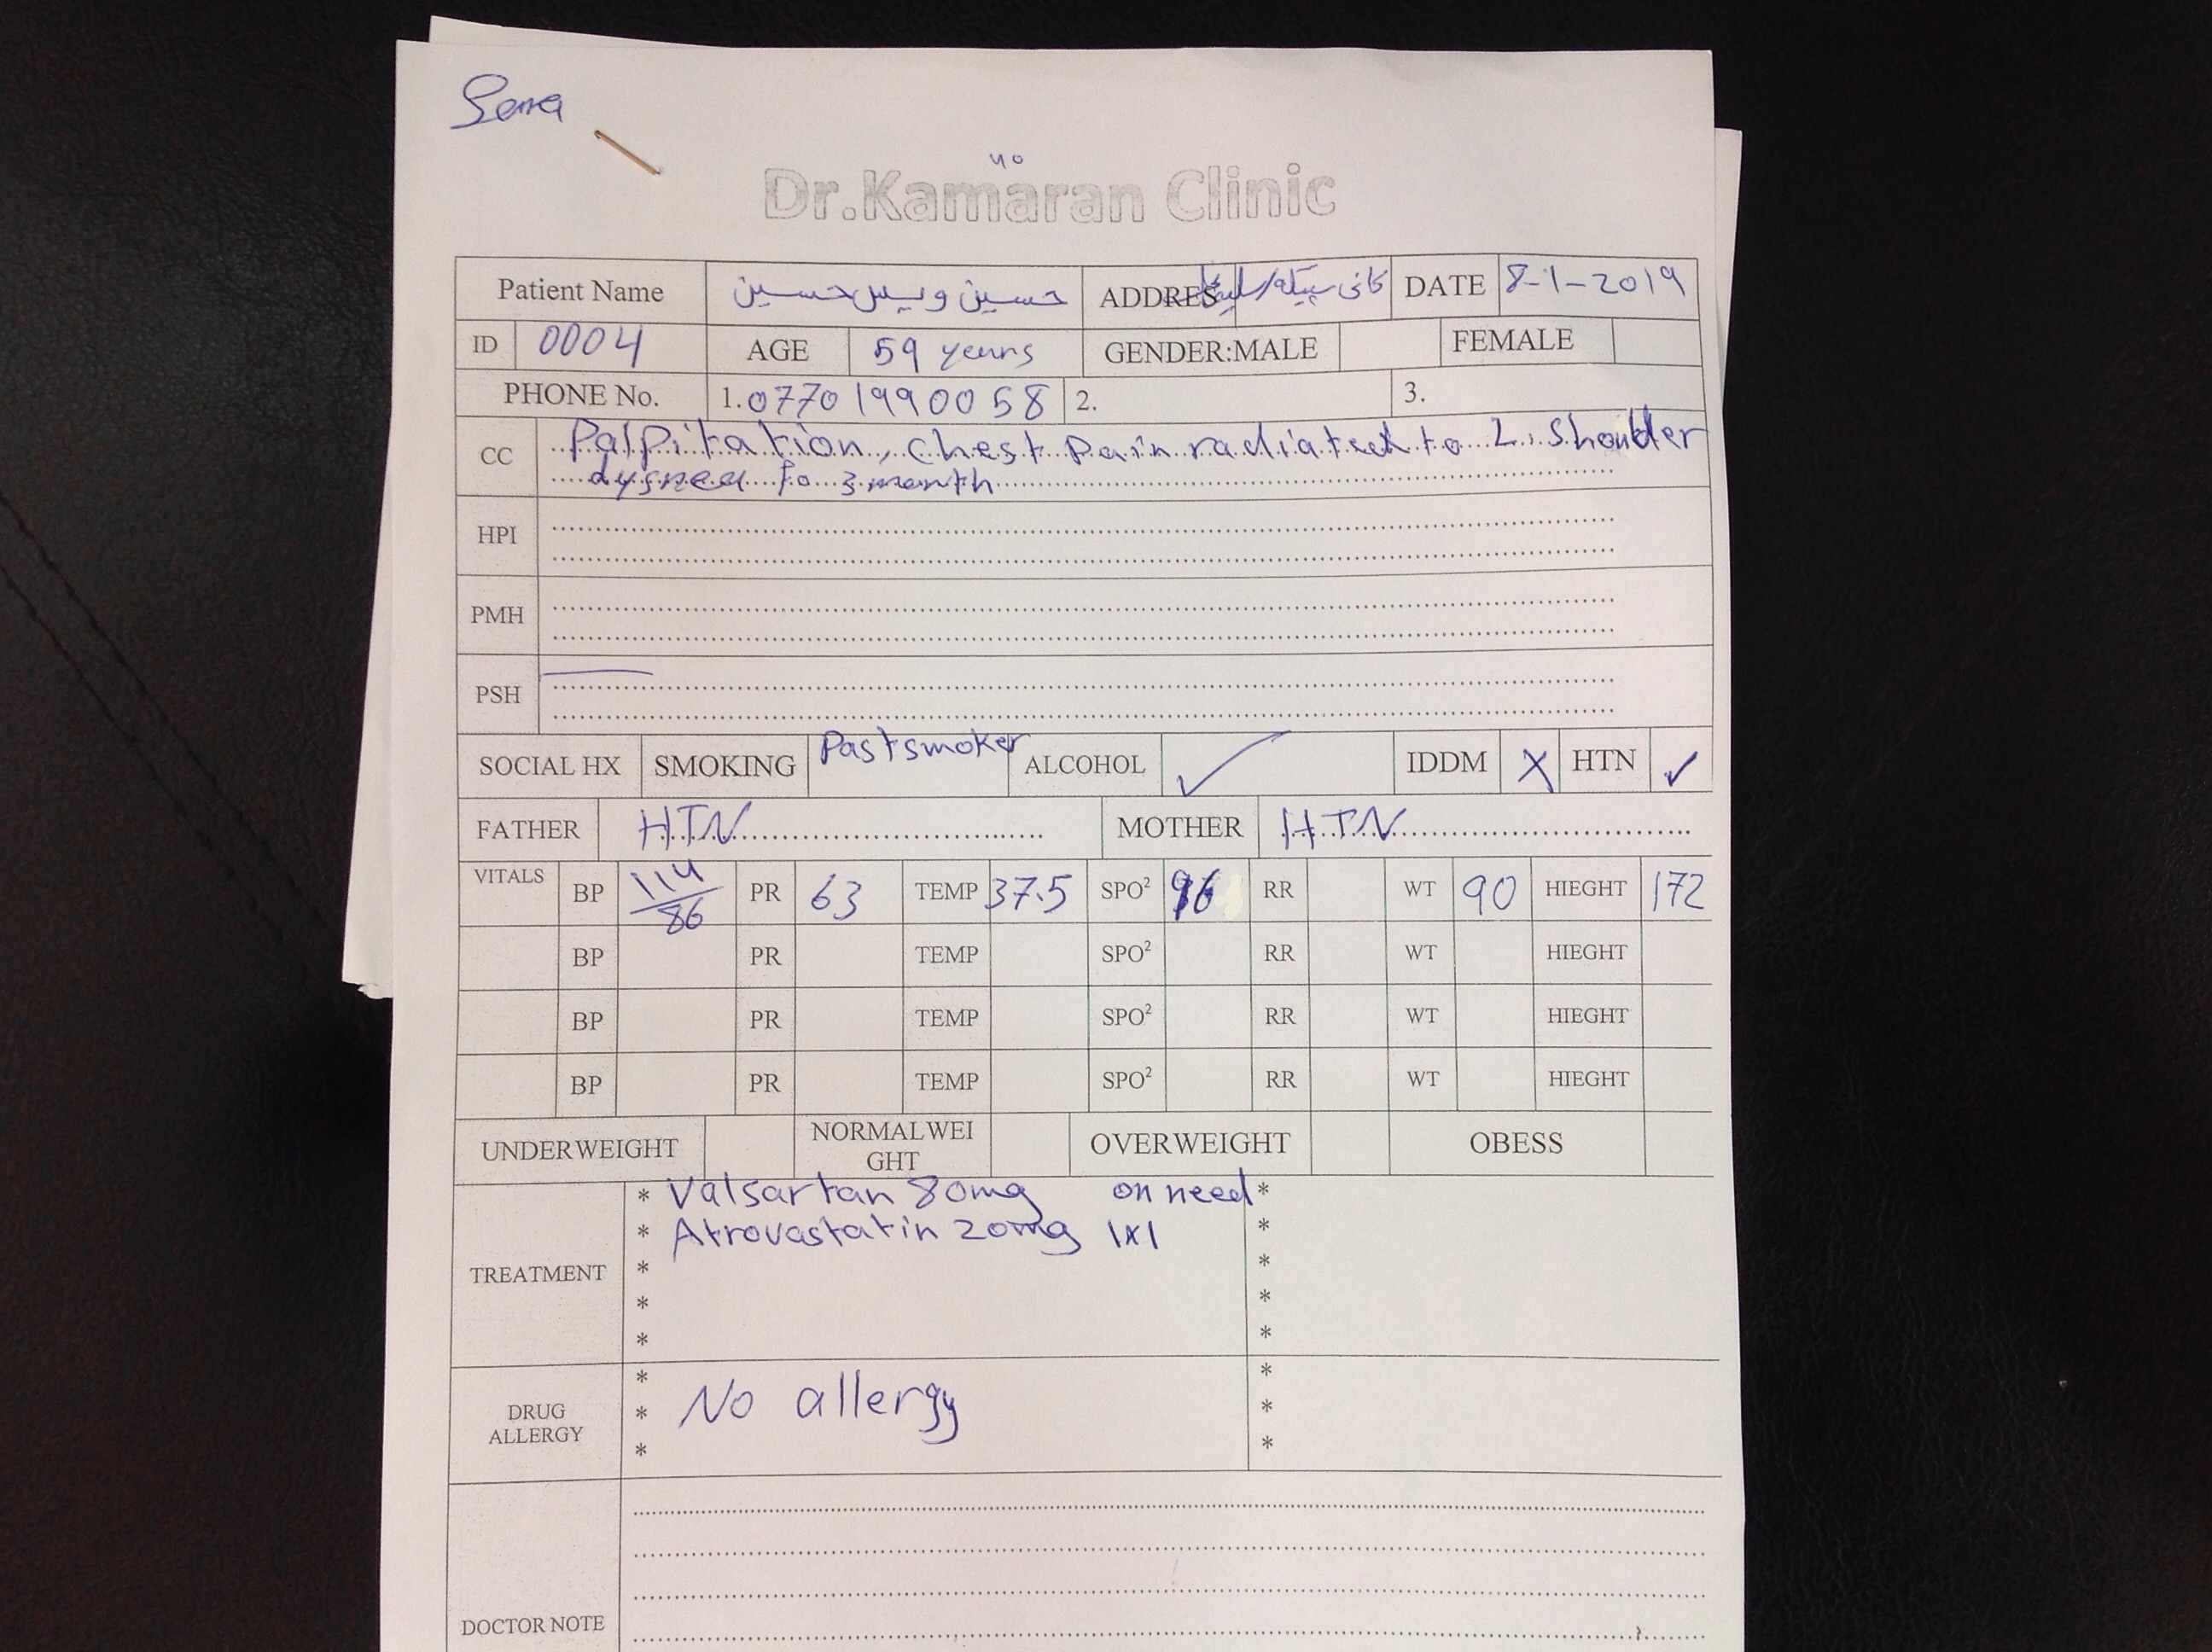 Dr.Kamaran Clinic
Patient Name حسين ويس حسين ADDRES كانى سپيكه DATE 8-1-2019
ID 0004 AGE 59 years GENDER:MALE FEMALE
PHONE No. 1.07701990058 2. 3.
CC Palpitation, Chest Pain radiated to L. Shoulder
dysnea fo 3 month
HPI
PMH
PSH
SOCIAL HX SMOKING Past smoker ALCOHOL ✓ IDDM X HTN ✓
FATHER HTN MOTHER HTN
VITALS BP 114/86 PR 63 TEMP 37.5 SPO² 96 RR WT 90 HIEGHT 172
BP PR TEMP SPO² RR WT HIEGHT
BP PR TEMP SPO² RR WT HIEGHT
BP PR TEMP SPO² RR WT HIEGHT
UNDERWEIGHT NORMALWEI OVERWEIGHT OBESS
GHT
* Valsartan 80mg on need *
* Atrovastatin 20mg 1x1 *
TREATMENT * *
* *
* *
* *
DRUG * No allergy *
ALLERGY
* *
DOCTOR NOTE